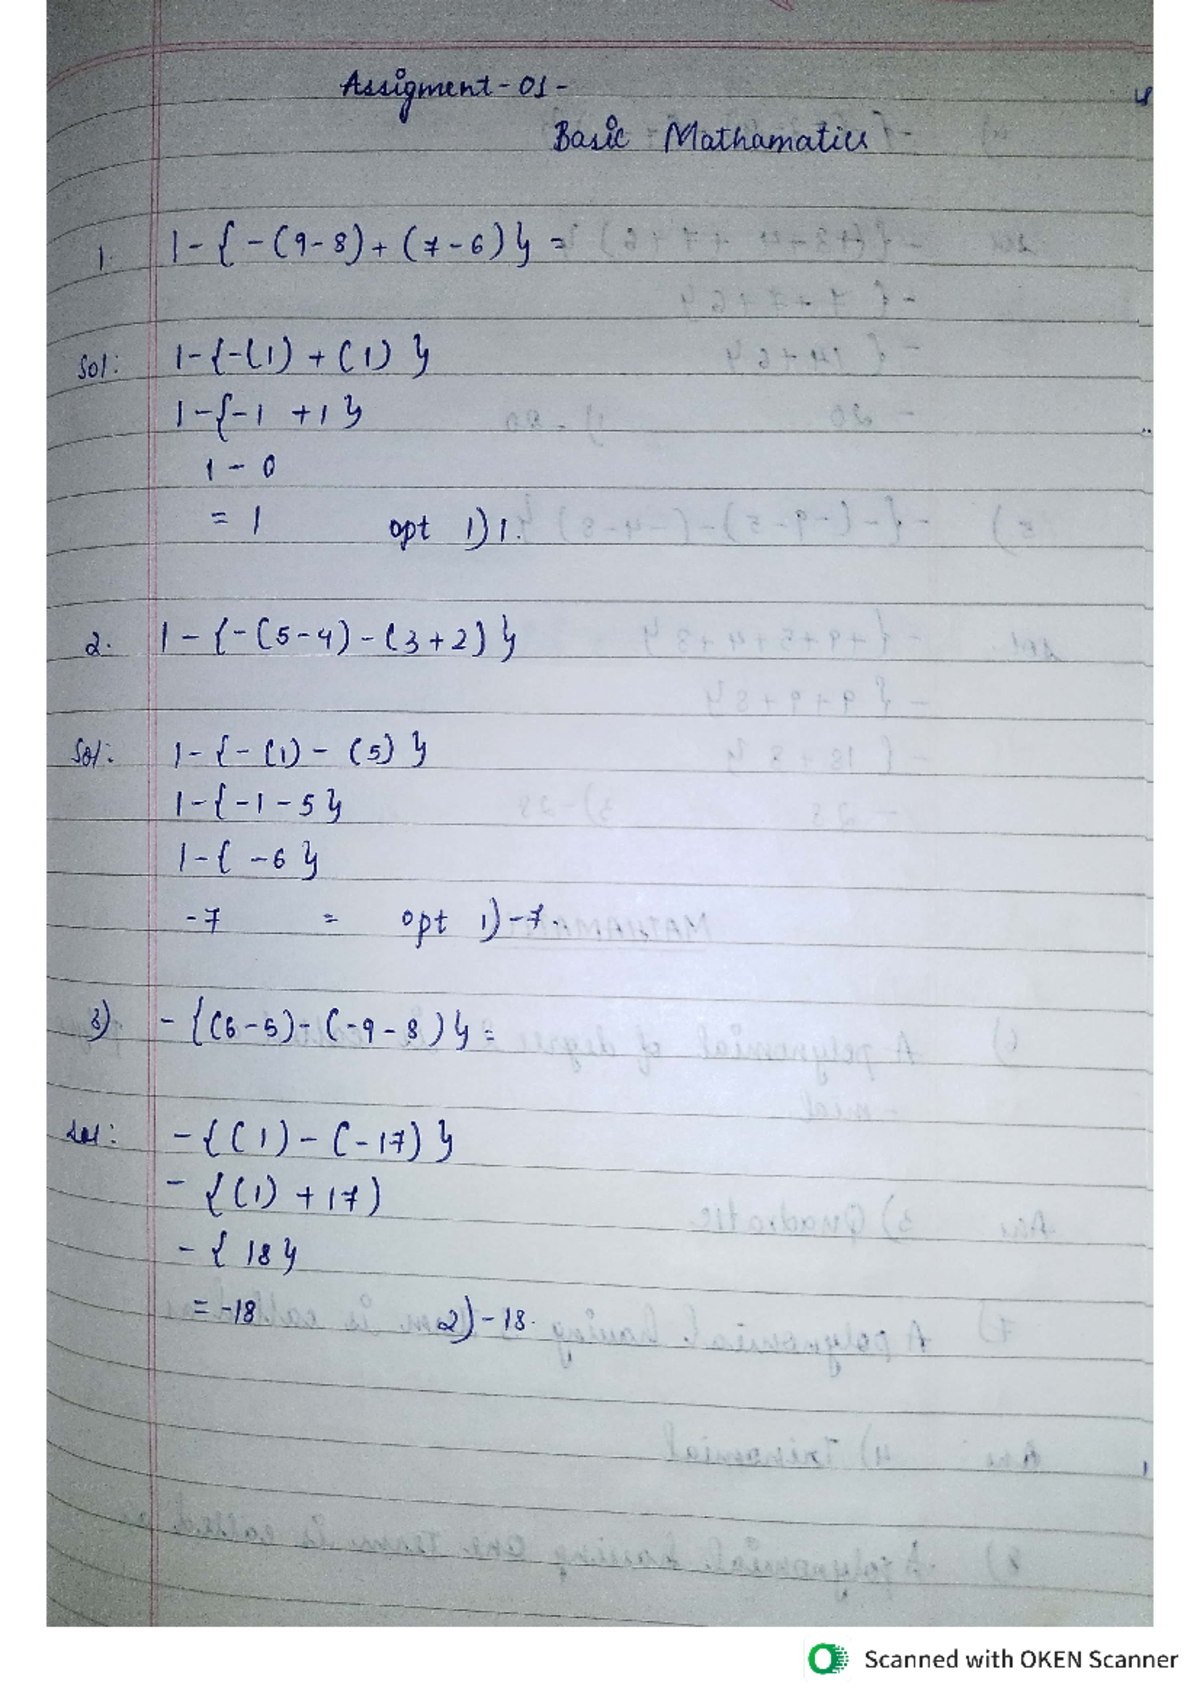 Assigment - 01 -
Basic Mathamatics
1. 1 - { - (9 - 8) + (7 - 6) } =
Sol: 1 - { - (1) + (1) }
1 - { - 1 + 1 }
1 - 0
= 1 opt 1) 1.
2. 1 - { - (5 - 4) - (3 + 2) }
Sol: 1 - { - (1) - (5) }
1 - { - 1 - 5 }
1 - { - 6 }
- 7 = opt 1) - 7.
3) - { (6 - 5) - (- 9 - 8) } =
Sol: - { (1) - (- 17) }
- { (1) + 17 )
- { 18 }
= - 18 2) - 18.
Scanned with OKEN Scanner